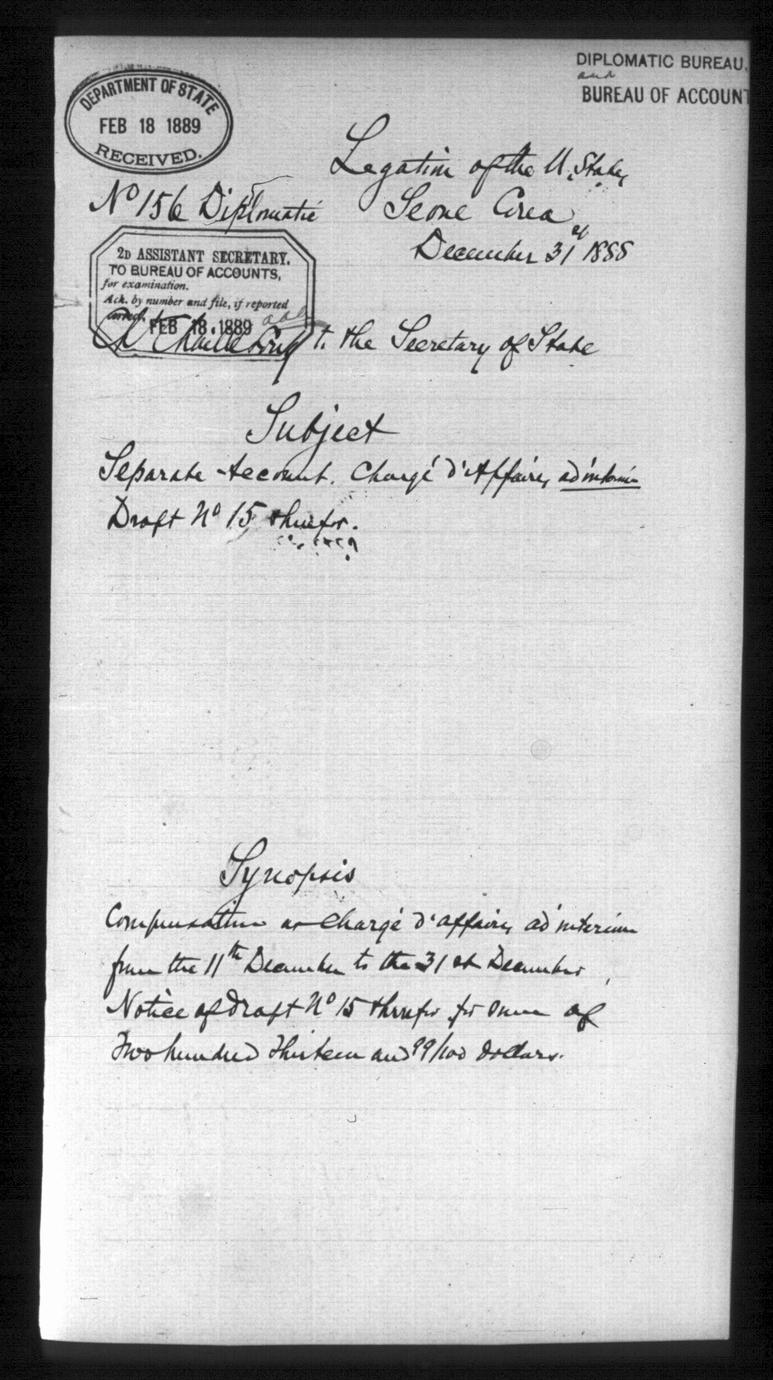 DIPLOMATIC BUREAU,
and
BUREAU OF ACCOUNT
DEPARTMENT OF STATE
FEB 18 1889
RECEIVED.
Legation of the U. States
Seoul Corea
December 31st 1888
No 156 Diplomatic
2D ASSISTANT SECRETARY.
TO BUREAU OF ACCOUNTS,
for examination.
Ack. by number and file, if reported
correct.
FEB 18 1889
Chaillé Long to the Secretary of State
Subject
Separate Account. Chargé d'Affaires ad interim
Draft No 15 therefor.
Synopsis
Compensation as Chargé d'affaires ad interim
from the 11th December to the 31st December
Notice of Draft No 15 therefor for sum of
Two hundred thirteen and 99/100 dollars.